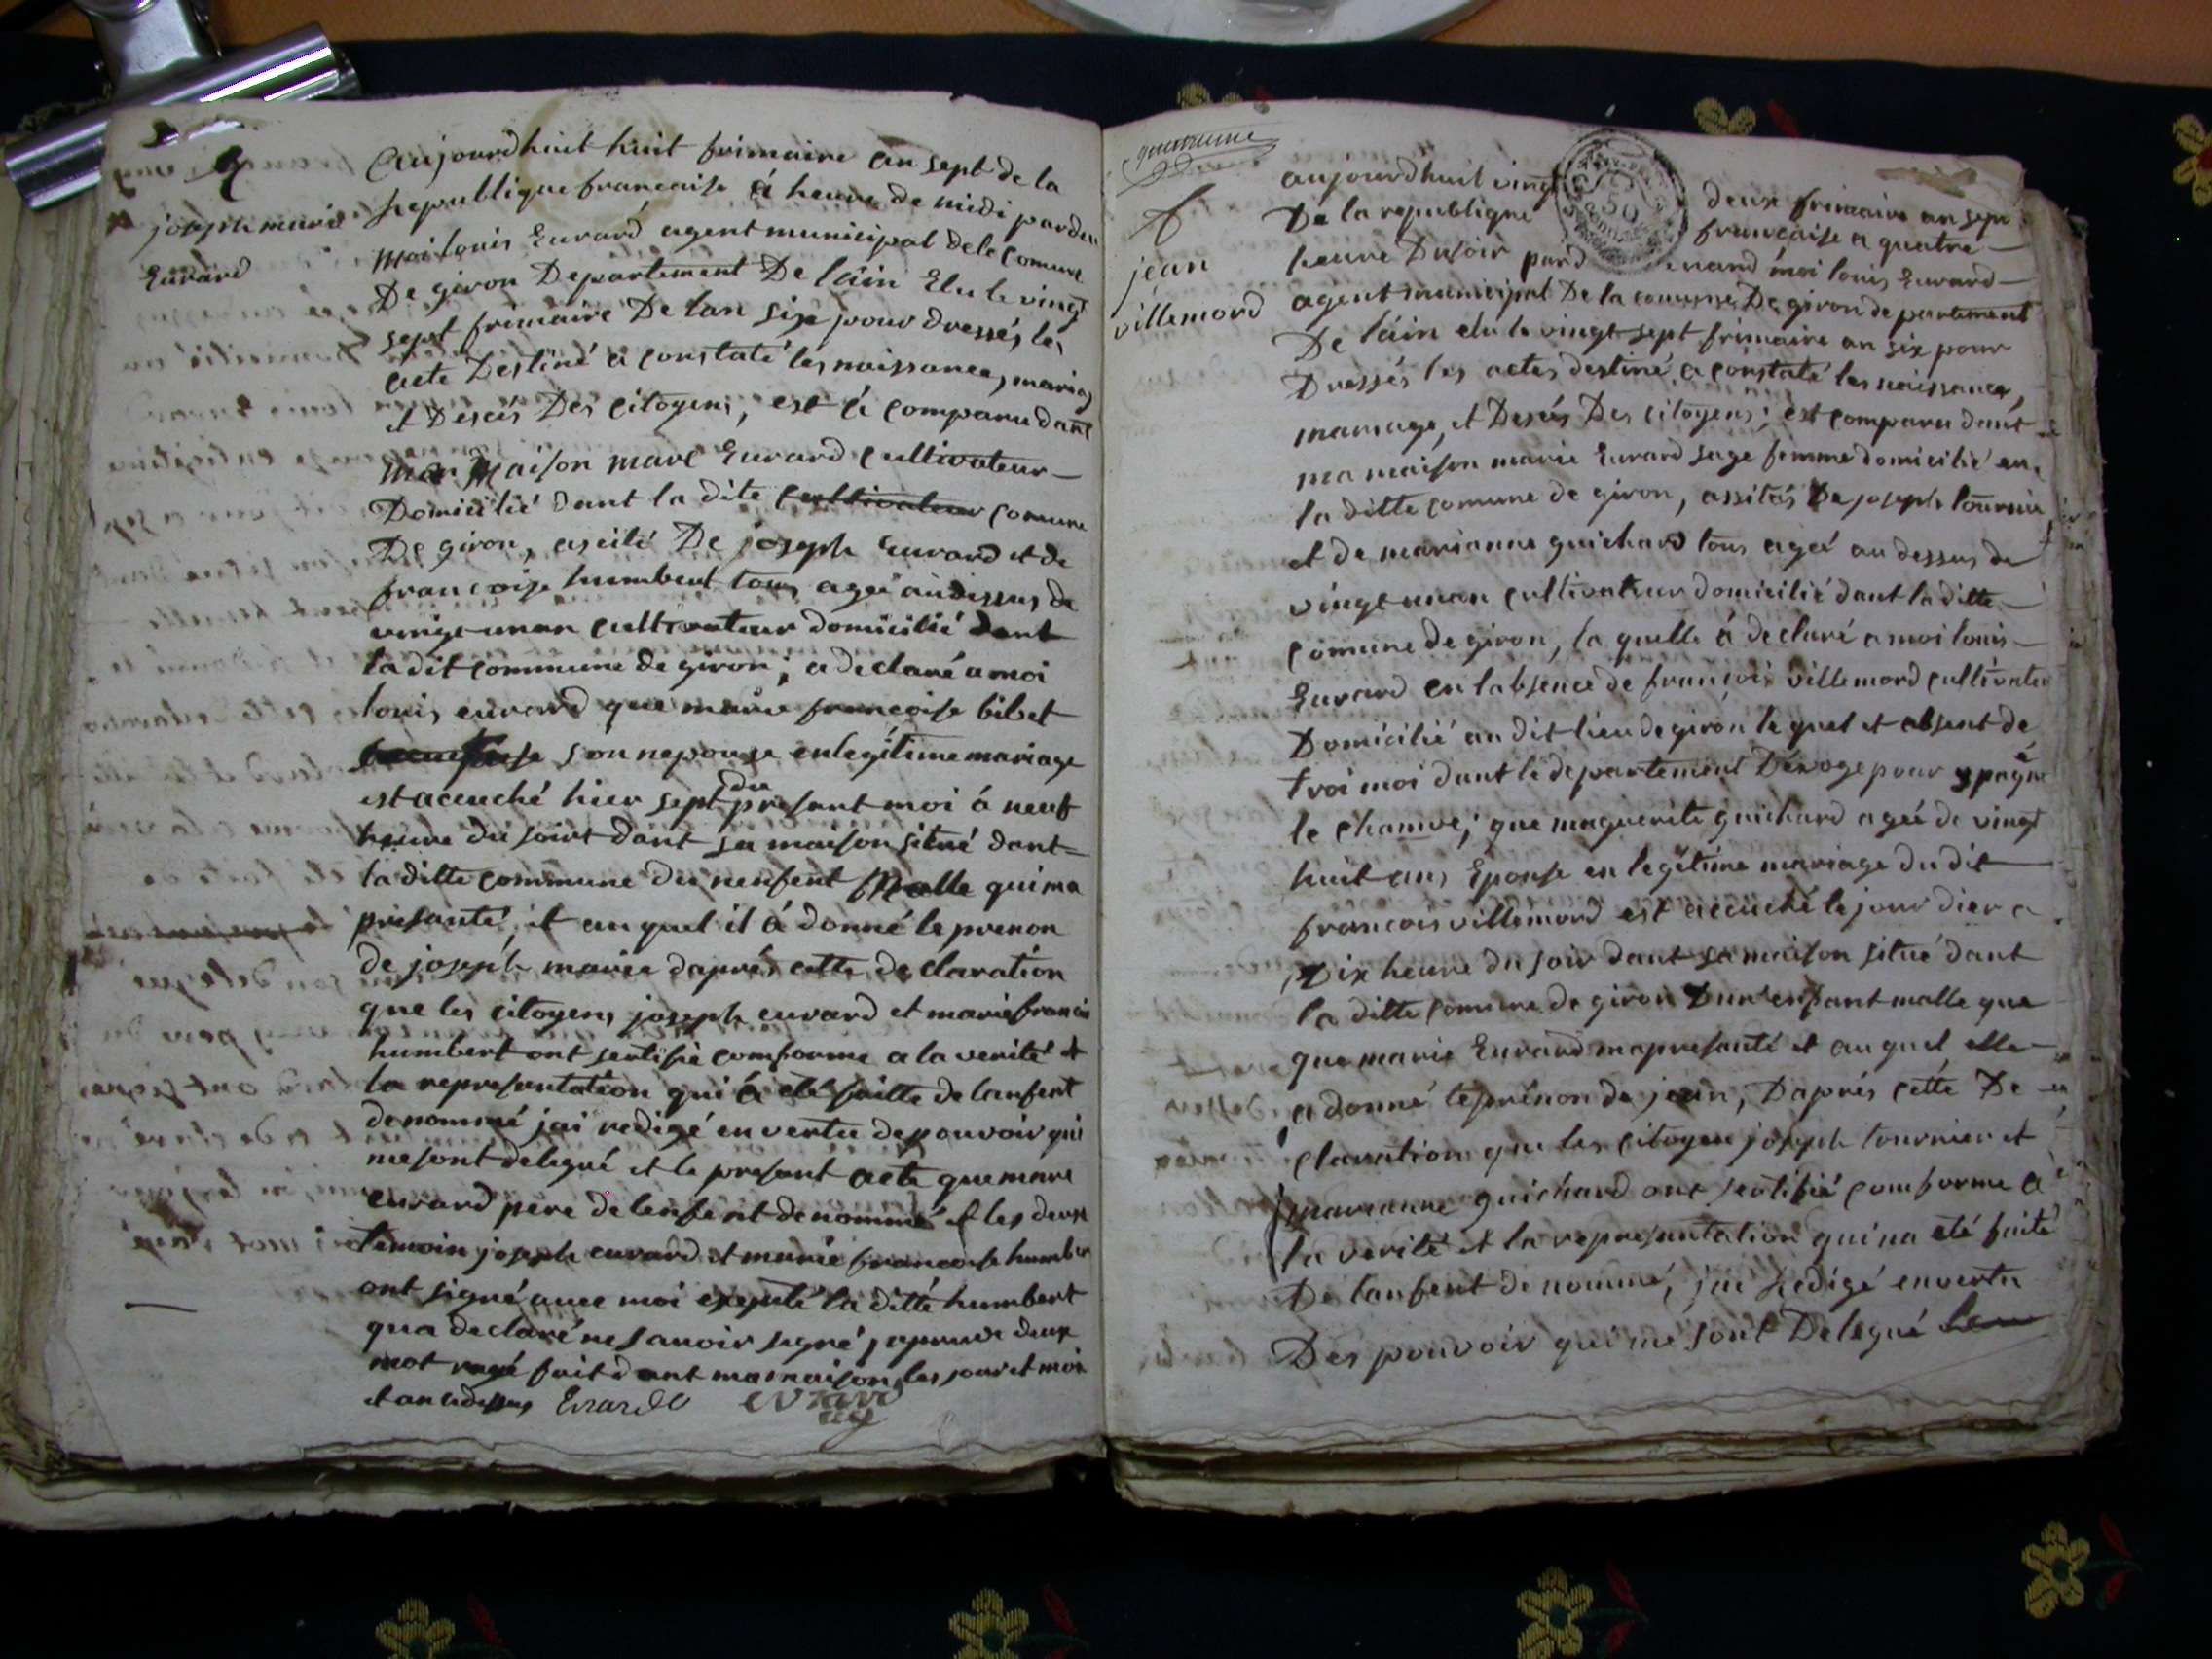 joseph marie
Eurard
aujourdhuit huit frimaire an sept de la
Republique francaise á heure de midi pardev
moi louis Eurard agent municipal dele Comune
De giron Departement De láin Elu le vingt
sept frimaire De lan six pour dressés les
acte Destiné a constaté les naissance, mariag
et Desés Des citoyens, est à comparu dant
ma Maison marc Eurard Cultivateur
Domicilié dant la dite cultivateur comune
De giron, asisté De joseph Eurard et de
francoise humbert tous agée audissus de
vingt unan cultivateur domicilié dant
la dit commune de giron; a declaré a moi
louis eurard que marie francoise bibet
son nepouse enlegitime mariage
est acouché hier sept du presant moi á neuf
heure du soirt dant sa maison situé dant
la ditte commune du nenfent Malle quima
presanté, et auquel il á donné le prenon
de joseph marie daprés cette declaration
que les citoyens joseph eurard et marie francois
humbert ont sertifié comforme a la verité et
la representation qui á été faitte de lanfent
denommé jai redigé en vertu de pouvoir qui
me sont delegué et le presant acte que marc
eurard pere de lenfent denommé et les deux
temoin joseph eurard et marie francoise humber
ont signé avec moi exepté la ditté humbert
qua declaré ne savoir signé japruve deux
mot rayé fait dant ma maison les jour et moi
et an sidessus Evrard evrard
ag
jean
villemord
aujourdhuit vingt deux frimaire an sept
De la republique francaise a quatre
heure Dusoir pard moi louis Eurard
agent municipal De la comune De giron departement
De láin elu le vingt sept frimaire an six pour
Dressés les actes destiné a constaté les naissance,
mariage, et Desés Des citoyens; est comparu dant
ma maison marie Eurard sage femme domicilié en
la ditte comune de giron, assités De joseph tournier
et de marianne guichard tous ageé au dessus de
vingt unan cultivateur domicilié dant la ditte
comune de giron, la quelle á declaré a moi louis
Eurard en labsence de francois villemord cultivateu
Domicilié au dit lieu de giron le quel et absent de
troi moi dant le departement Dévoge pour pegné
le chanvre; que maguerite guichard ageé de vingt
huit ans Epouse en legitime mariage du dit
francois villemord est accuché le jour dier a
Dix heure du soir dant sa maison situé dant
la ditte Comune de giron Dun enfant malle que
que marie Eurard mapresanté et au quel elle
a donné le prénon de jean, Daprés cette De
claration que les citoyen joseph tournier et
marianne guichard ont sertifié comforme a
la verité et la representation quina eté faite
De lanfent denommé, jai Redigé envertu
Des pouvoir qui me sont Delegué